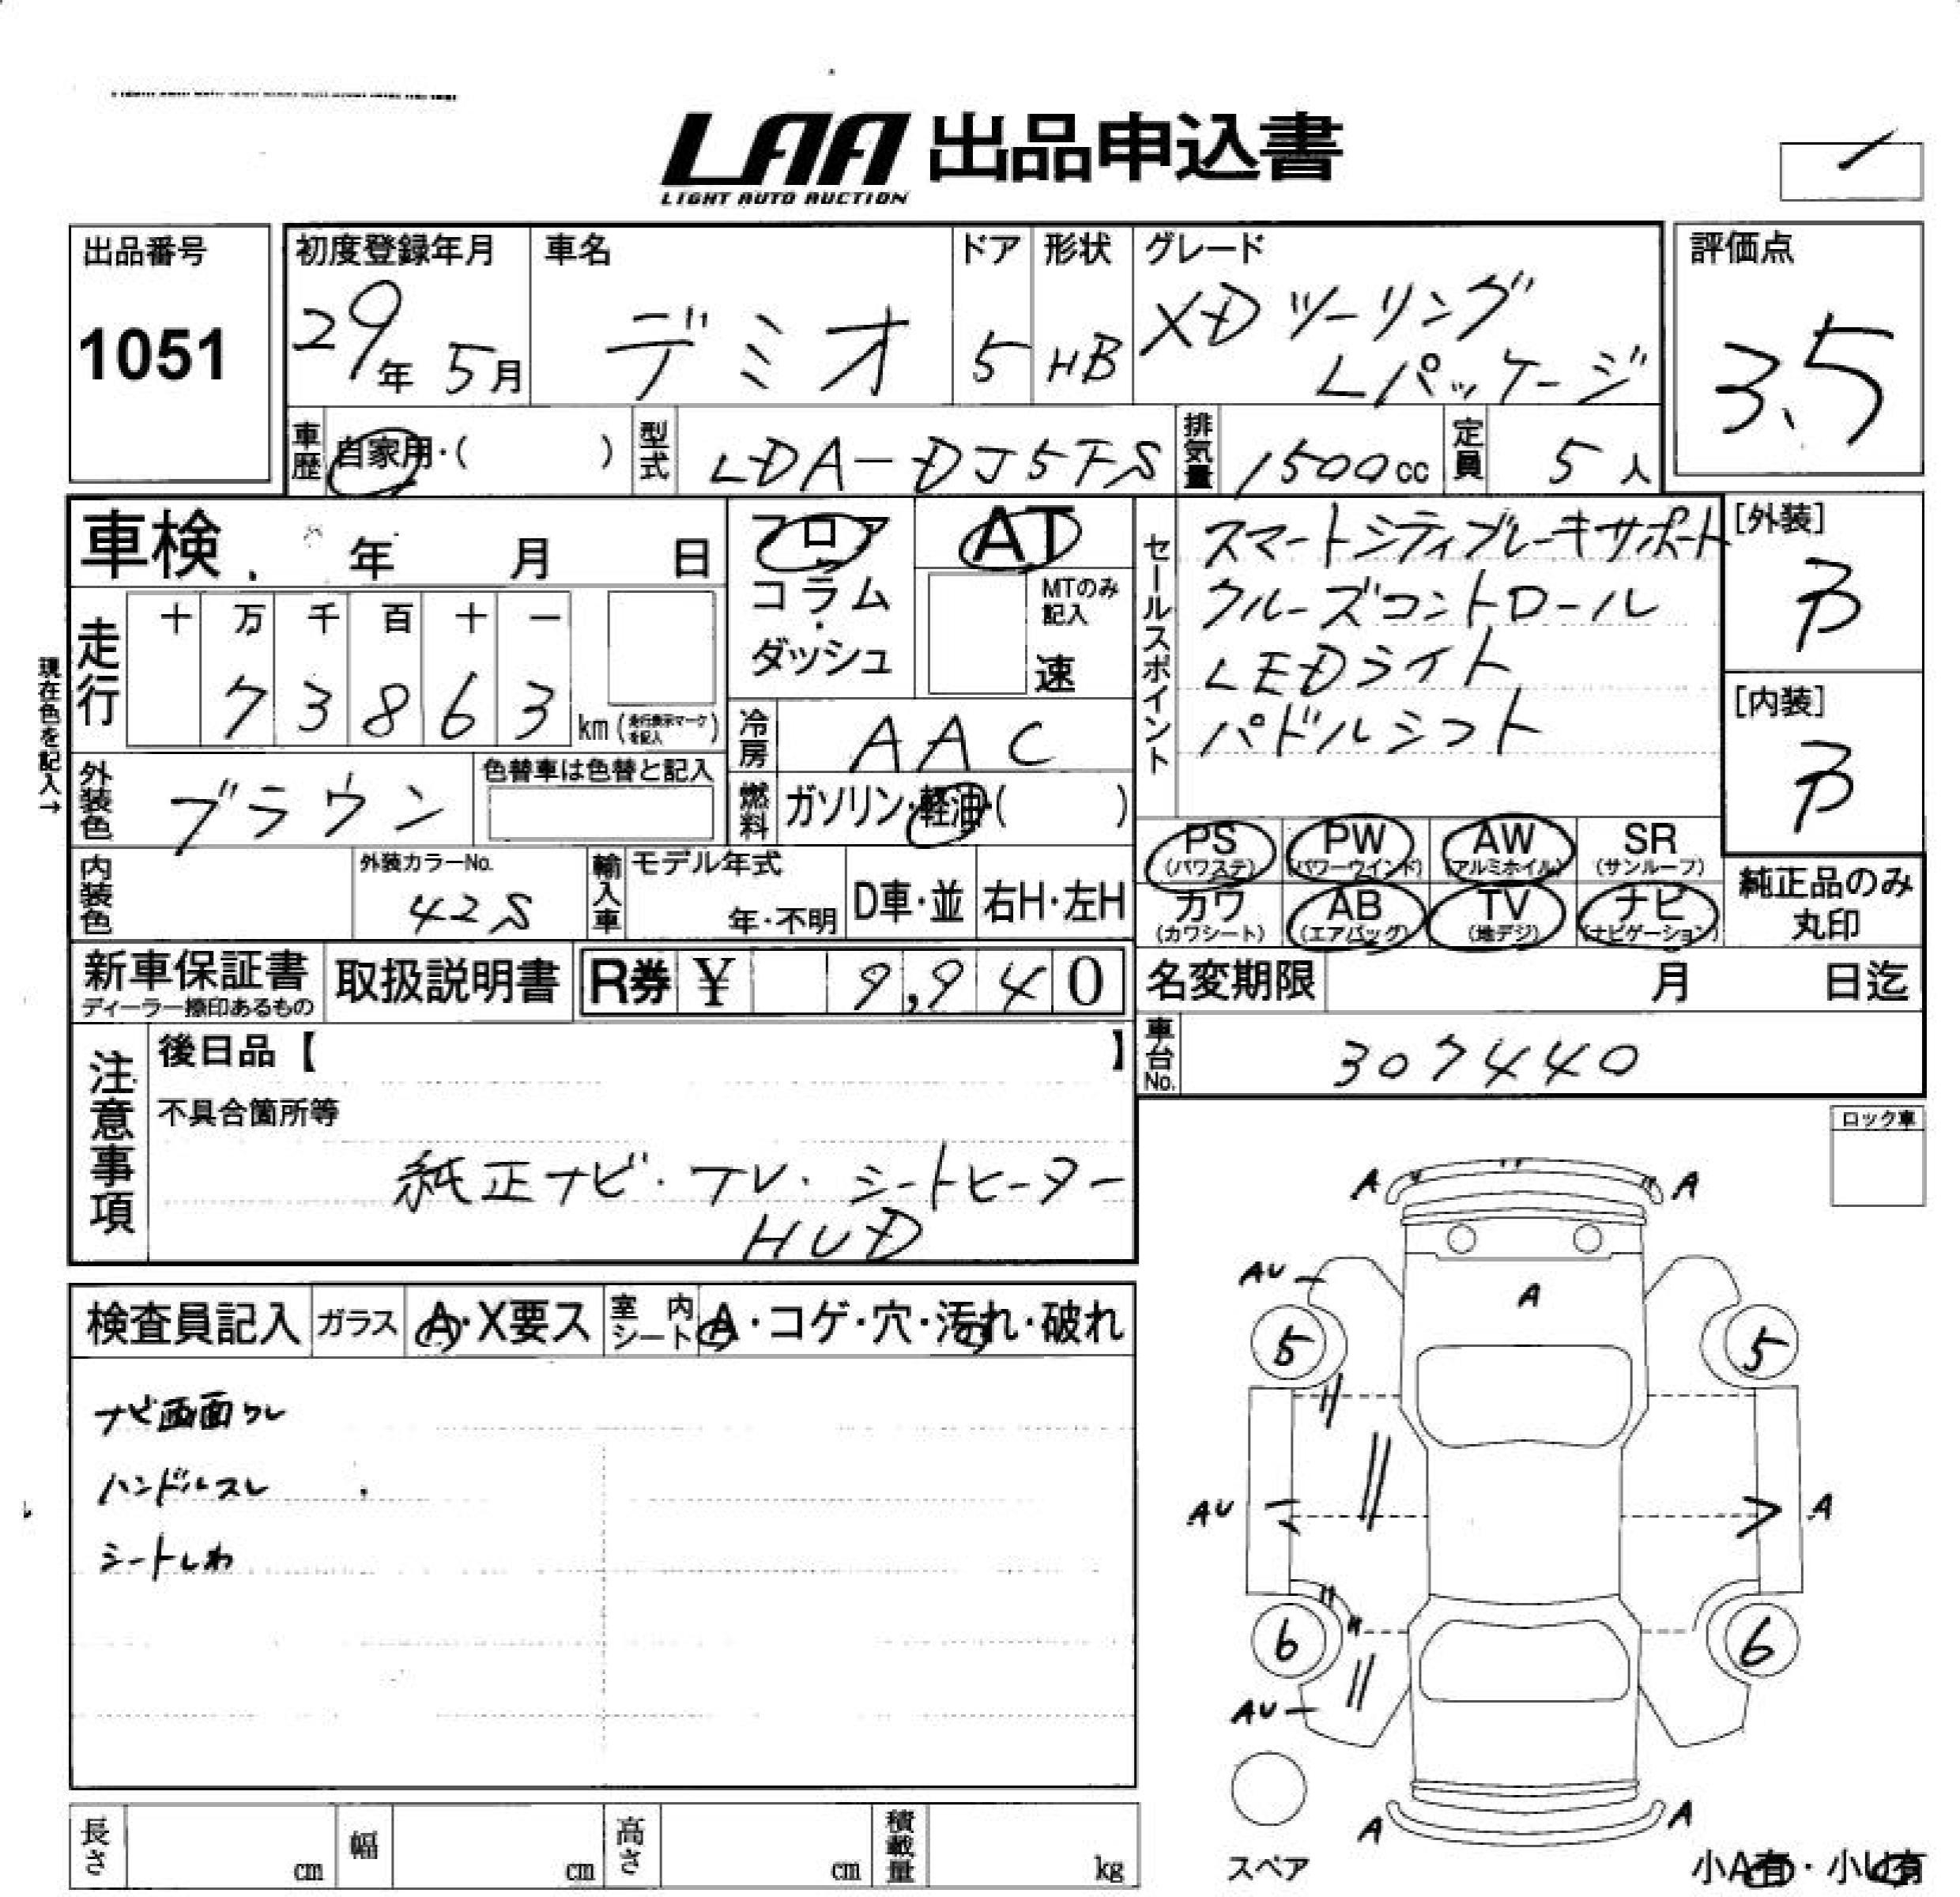 LAA 出品申込書
LIGHT AUTO AUCTION
出品番号
1051
初度登録年月
29年 5月
車名
デミオ
ドア
5
形状
HB
グレード
XDツーリング
Lパッケージ
評価点
3.5
車歴 自家用・( )
型式 LDA-DJ5FS
排気量 1500cc
定員 5人
車検 年 月 日
フロア
コラム
ダッシュ
AT
MTのみ記入
速
セールスポイント
スマートシティブレーキサポート
クルーズコントロール
LEDライト
パドルシフト
[外装]
B
[内装]
B
現在色を記入→
走行
十 万 千 百 十 一
7 3 8 6 3 km (走行表示マークを記入)
冷房 AAC
外装色 ブラウン
色替車は色替と記入
燃料 ガソリン・軽油・( )
PS (パワステ)
PW (パワーウインド)
AW (アルミホイル)
SR (サンルーフ)
カワ (カワシート)
AB (エアバッグ)
TV (地デジ)
ナビ (ナビゲーション)
純正品のみ
丸印
内装色
外装カラーNo.
42S
輸入車
モデル年式
年・不明
D車・並
右H・左H
新車保証書
ディーラー捺印あるもの
取扱説明書
R券 ¥ 9,940
名変期限 月 日迄
車台No. 307440
注意事項
後日品【 】
不具合箇所等
純正ナビ・テレ・シートヒーター
HUD
ロック車
検査員記入
ガラス A・X要ス
室内シート A・コゲ・穴・汚れ・破れ
ナビ画面ワレ
ハンドルスレ
シートしわ
A A
AU
A
5 5
AU A
6 6
AU
A A
スペア
小A有・小U有
長さ cm
幅 cm
高さ cm
積載量 kg